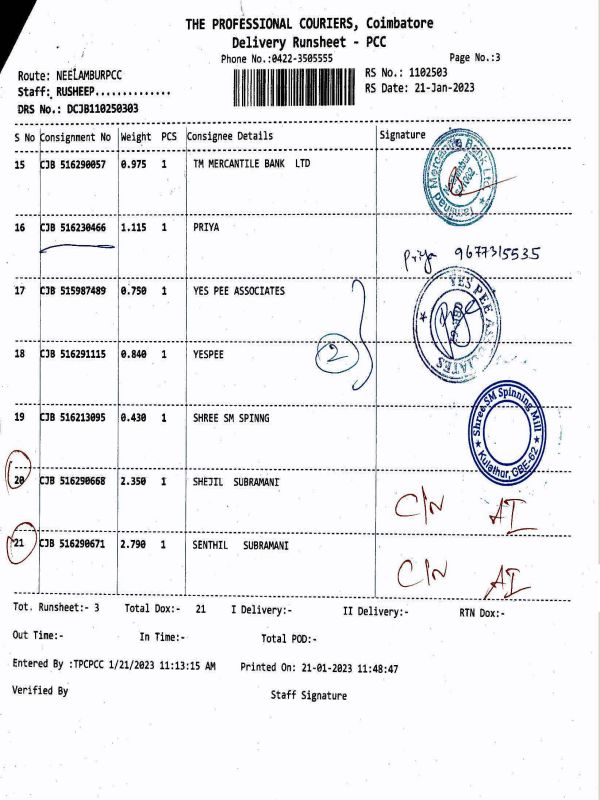 THE PROFESSIONAL COURIERS, Coimbatore
Delivery Runsheet - PCC
Phone No.:0422-3505555 Page No.:3
Route: NEELAMBURPCC RS No.: 1102503
Staff: RUSHEEP.............. RS Date: 21-Jan-2023
DRS No.: DCJB110250303
S No Consignment No Weight PCS Consignee Details Signature
15 CJB 516290057 0.975 1 TM MERCANTILE BANK LTD
Mercantile Bank Ltd
16 CJB 516230466 1.115 1 PRIYA
Priya 9677315535
17 CJB 515987489 0.750 1 YES PEE ASSOCIATES
YES PEE ASSOCIATES
2
18 CJB 516291115 0.840 1 YESPEE
19 CJB 516213095 0.430 1 SHREE SM SPINNG
Shree SM Spinning Mill
Kulathur, CBE-62
20 CJB 516290668 2.350 1 SHEJIL SUBRAMANI
C/N AI
21 CJB 516290671 2.790 1 SENTHIL SUBRAMANI
C/N AI
Tot. Runsheet:- 3 Total Dox:- 21 I Delivery:- II Delivery:- RTN Dox:-
Out Time:- In Time:- Total POD:-
Entered By :TPCPCC 1/21/2023 11:13:15 AM Printed On: 21-01-2023 11:48:47
Verified By Staff Signature